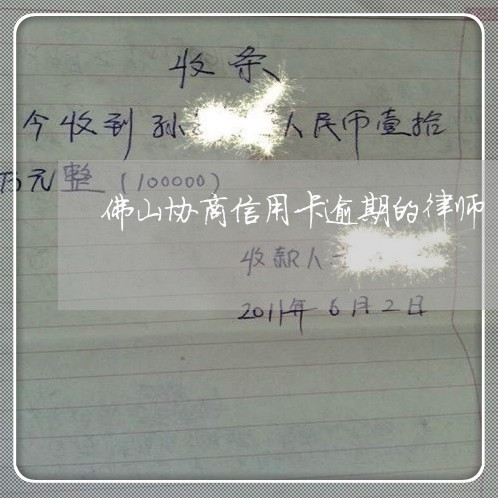 收条
今收到孙 人民币壹拾
万元整（100000）
佛山协商信用卡逾期的律师
收款人
2011年6月2日